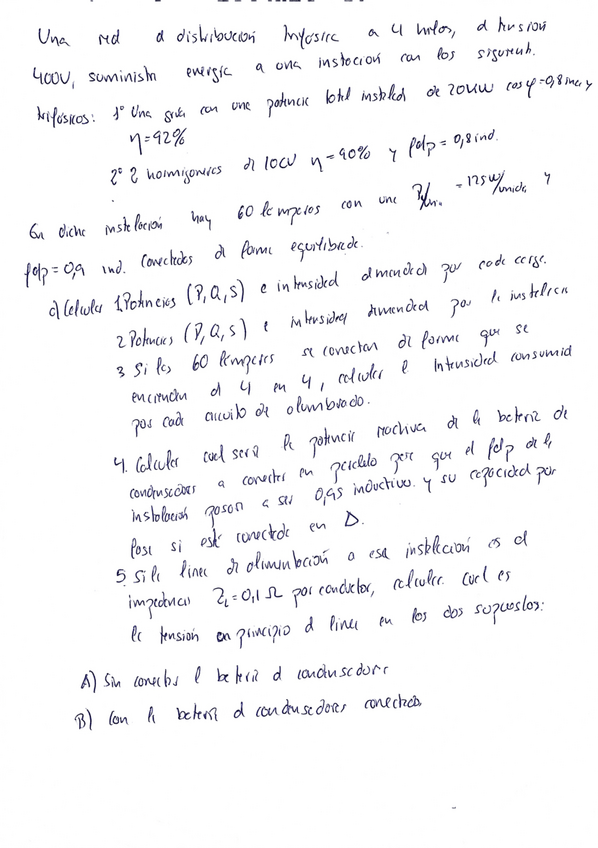 Una red d distribución trifásica a 4 hilos, d tensión
400V, suministra energía a una instlación con los siguient.
trifásicos: 1º Una grúa con una potencia total instlada de 20KW cosφ=0,8 ind y
η=92%
2º 2 hormigoneras de 10CV η=90% y fdp=0,8 ind.
En dicha instalación hay 60 lámparas con una P/un. =125W/unida y
fdp=0,9 ind. conectadas de forma equilibrada.
a) Calcula 1. Potencias (P,Q,S) e intensidad demandad por cada carga.
2 Potencias (P,Q,S) e intensidad demandad por la instalación
3 Si las 60 lámparas se conectan de forma que se
enciendan d 4 en 4, calcular l Intensidad consumid
por cada circuito de alumbrado.
4. Calcular cual sera la potencia reactiva de la bateria de
condensadores a conectar en paralelo para que el fdp de la
instalación pasara a ser 0,95 inductivo. y su capacidad por
fase si esté conectada en Δ.
5. Si la linea de alimentación a esa instalación es d
impedancia Z_L=0,1 Ω por conductor, calcular. Cual es
la tensión en principio d linea en los dos supuestos:
A) Sin conectar l bateria d condensadores
B) Con la bateria d condensadores conectada